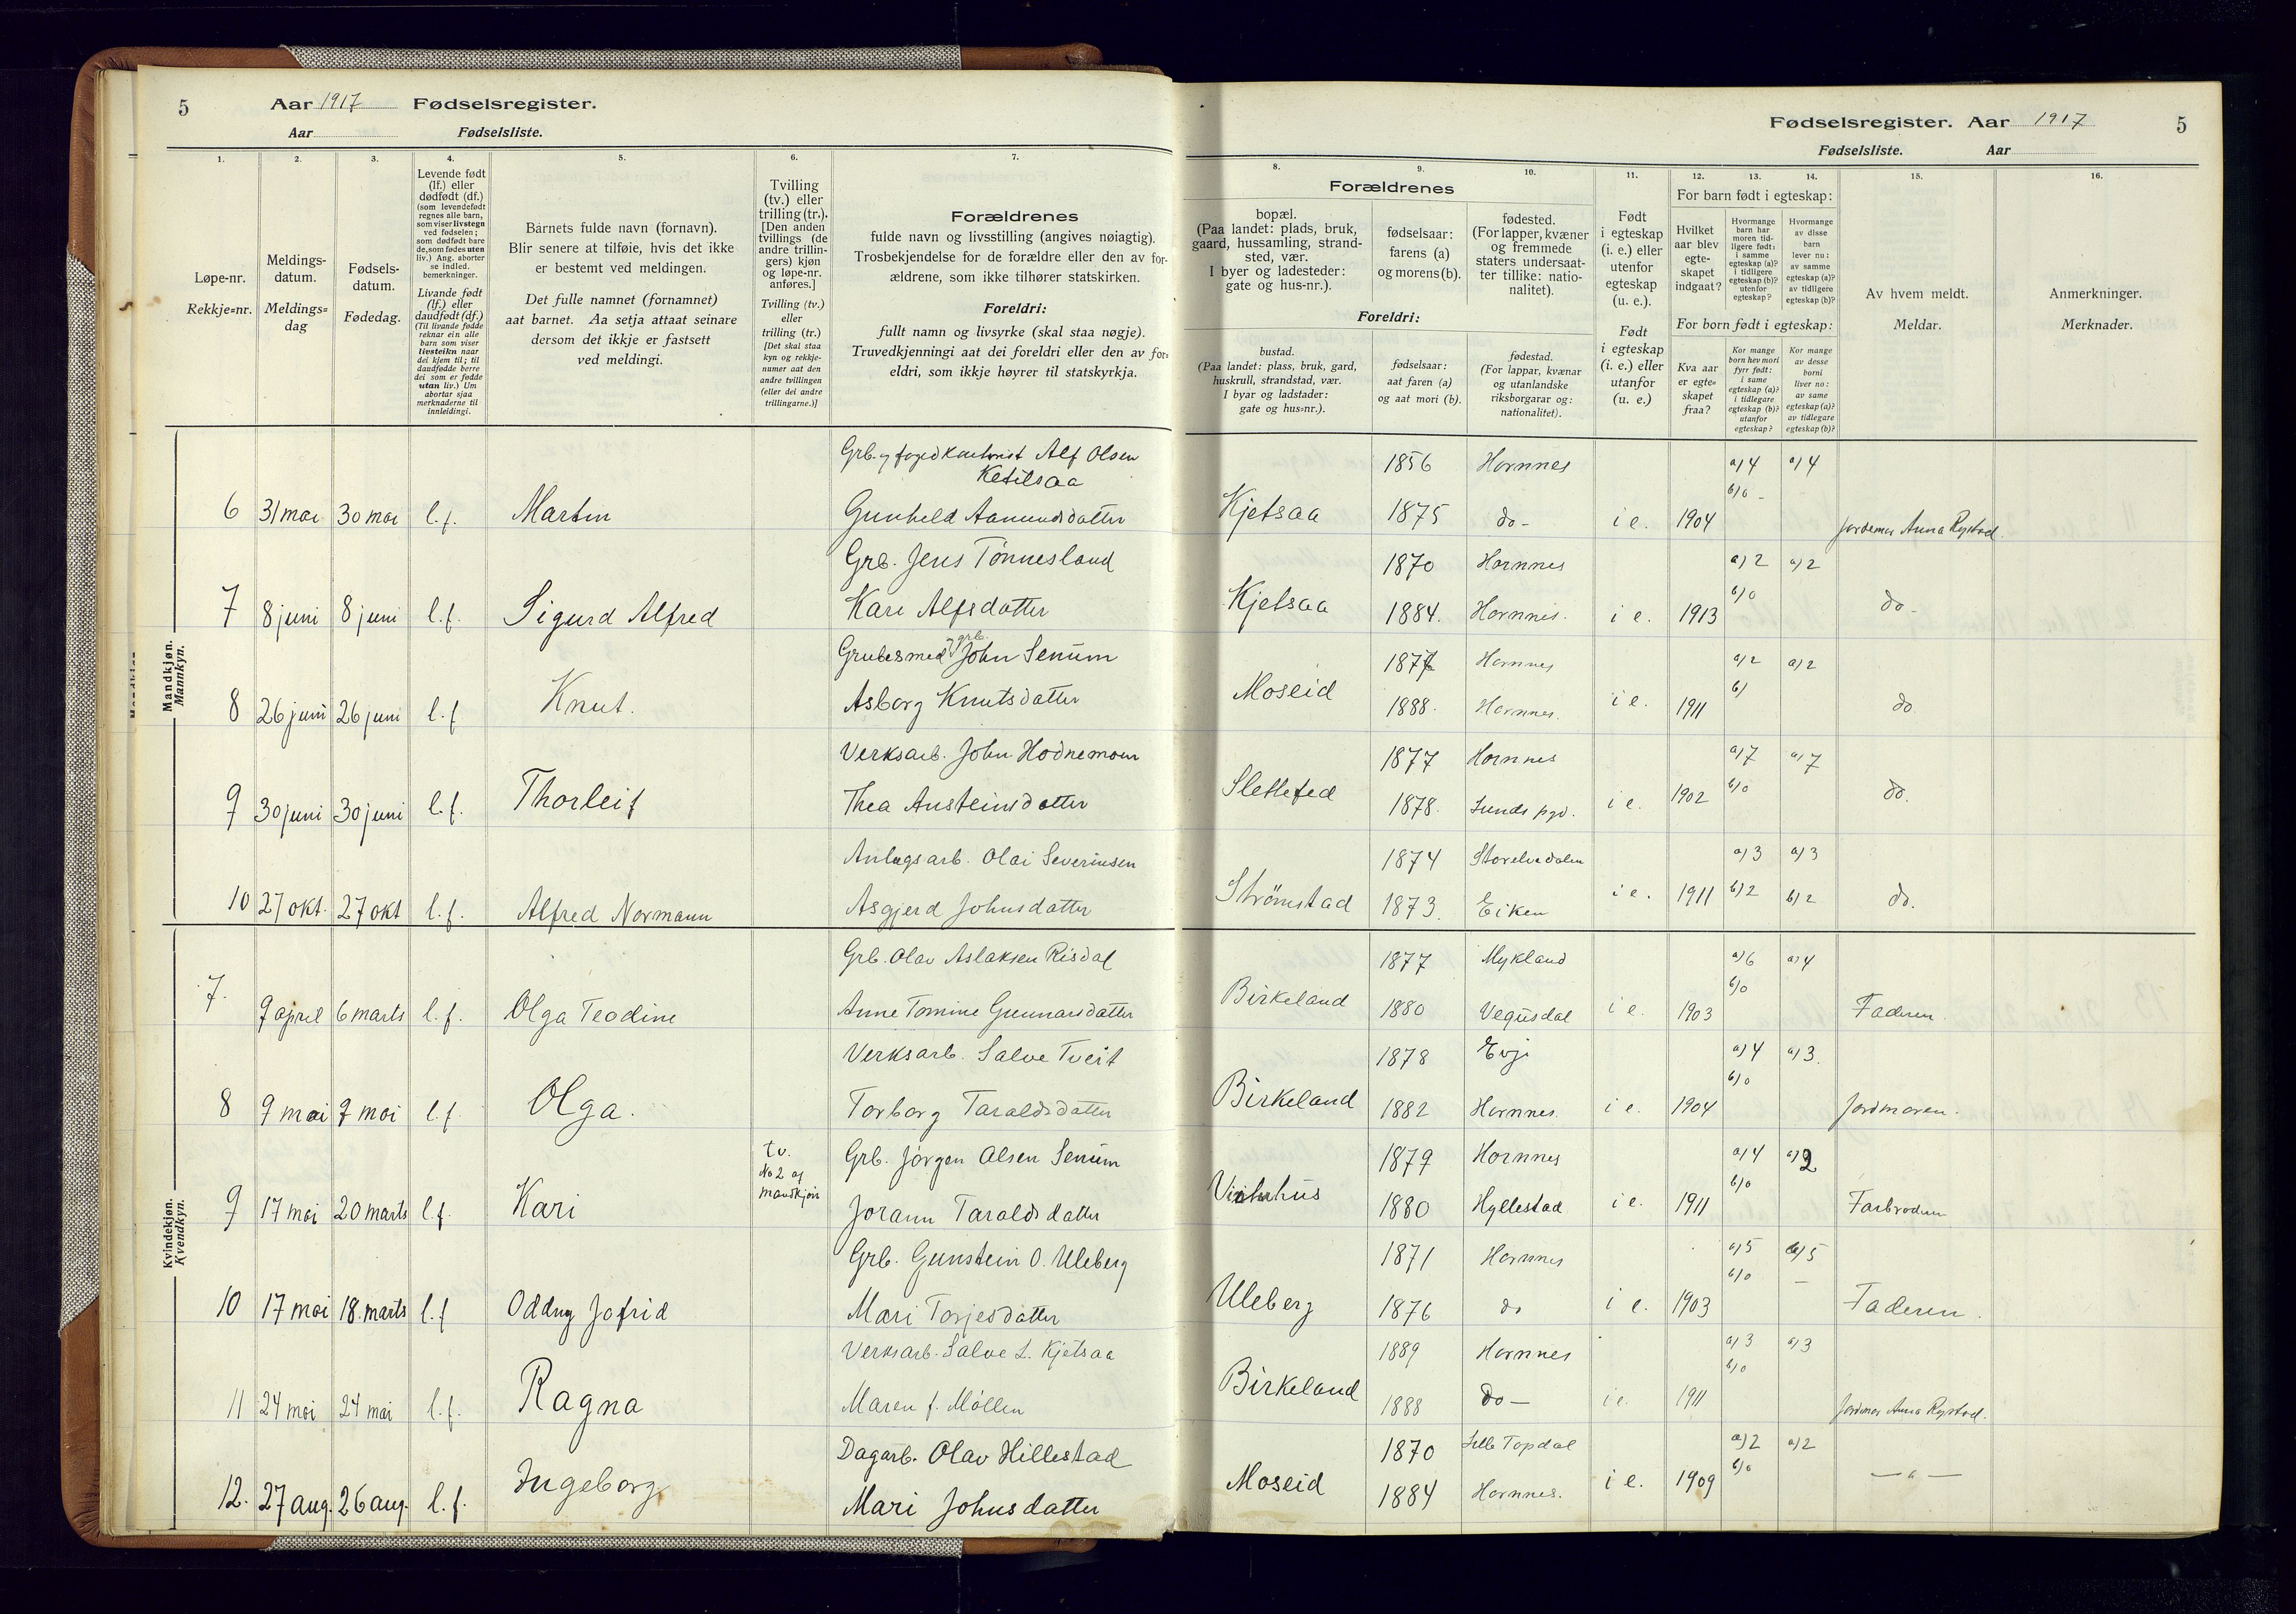 5 Aar 1917 Fødselsregister.
Aar Fødselsliste.
1. 2. 3. 4. 5. 6. 7.
Løpe-nr.
Rekkje=nr.
Meldings-
datum.
Meldings=
dag
Fødsels-
datum.
Fødedag.
Levende født
(lf.) eller
dødfødt (df.)
(som levendefødt
regnes alle barn,
som viser livstegn
ved fødselen;
som dødfødt bare
de, som fødes uten
liv.) Ang. aborter
se indled.
bemerkninger.
Livande født
(lf.) eller
daudfødt (df.)
(Til livande fødde
reknar ein alle
barn som viser
livsteikn naar
dei kjem til; til
daudfødde berre
dei som er fødde
utan liv.) Um
abortar sjaa
merknaderne til
innleidingi.
Barnets fulde navn (fornavn).
Blir senere at tilføie, hvis det ikke
er bestemt ved meldingen.
Det fulle namnet (fornamnet)
aat barnet. Aa setja attaat seinare
dersom det ikkje er fastsett
ved meldingi.
Tvilling
(tv.) eller
trilling (tr.).
[Den anden
tvillings (de
andre trillin-
gers) kjøn
og løpe-nr.
anføres.]
Tvilling (tv.)
eller
trilling (tr.)
[Det skal staa
kyn og rekkje-
numer aat den
andre tvillingen
(eller dei andre
trillingarne.)]
Forældrenes
fulde navn og livsstilling (angives nøiagtig).
Trosbekjendelse for de forældre eller den av for-
ældrene, som ikke tilhører statskirken.
Foreldri:
fullt namn og livsyrke (skal staa nøgje).
Truvedkjenningi aat dei foreldri eller den av for=
eldri, som ikkje høyrer til statskyrkja.
Mandkjøn.
Mannkyn.
Grb. og Alf Olsen
Ketilsaa
6 31 mai 30 mai l.f. Martin Gunhild Aamundsdatter
Grb. Jens Tønnesland
7 8 juni 8 juni l.f. Sigurd Alfred Kari Alfsdatter
grb.
Grubesmed og John Senum
8 26 juni 26 juni l.f Knut. Asborg Knutsdatter
Verksarb. John Hodnemoen
9 30 juni 30 juni l.f. Thorleif Thea Austeinsdatter
Anlegsarb. Olai Severinsen
10 27 okt. 27 okt l.f. Alfred Normann Asgjerd Johnsdatter
Kvindekjøn.
Kvendkyn.
Grb. Olav Aslaksen Risdal
7. 9 april 6 marts l.f. Olga Teodine Anne Tomine Gunnarsdatter
Verksarb. Salve Tveit
8 9 mai 7 mai l.f. Olga. Torborg Taraldsdatter
tv.
No 2 af
mandkjøn
Grb. Jørgen Olsen Senum
9 17 mai 20 marts l.f. Kari Jorann Taraldsdatter
Grb. Gunstein O. Uleberg
10 17 mai 18. marts l.f Oddny Jofrid Mari Torjesdatter
Verksarb. Salve L. Kjetsaa
11 24 mai 24 mai l.f. Ragna Maren f. Mollen
Dagarb. Olav Hillestad
12. 27 aug. 26 aug. l.f. Ingeborg Mari Johnsdatter
Fødselsregister. Aar 1917 5
Fødselsliste. Aar
8. 9. 10. 11. 12. 13. 14. 15. 16.
Forældrenes
bopæl.
(Paa landet: plads, bruk,
gaard, hussamling, strand-
sted, vær.
I byer og ladesteder:
gate og hus-nr.).
fødselsaar:
farens (a)
og morens (b).
fødested.
(For lapper, kvæner
og fremmede
staters undersaat-
ter tillike: natio-
nalitet).
Foreldri:
bustad.
(Paa landet: plass, bruk, gard,
huskrull, strandstad, vær.
I byar og ladstader:
gate og hus=nr.).
fødselsaar:
aat faren (a)
og aat mori (b).
fødestad.
(For lappar, kvænar
og utanlandske
riksborgarar og:
nationalitet).
Født
i egteskap
(i. e.) eller
utenfor
egteskap
(u. e.).
Født
i egteskap
(i. e.) eller
utanfor
(u. e.)
For barn født i egteskap:
Hvilket
aar blev
egte-
skapet
indgaat?
Hvormange
barn har
moren tid-
ligere født:
i samme
egteskap (a)?
i tidligere
egteskap (b)?
utenfor
egteskap?
Hvormange
av disse
barn
lever nu:
av samme
egteskap (a)?
av tidligere
egteskap (b)?
For born født i egteskap:
Kva aar
er egte=
skapet
fraa?
Kor mange
born hev mori
fyrr født:
i same
egteskap (a)?
i tidlegare
egteskap (b)?
utanfor
egteskap?
Kor mange
av desse
borni
liver no:
av same
egteskap (a)?
av tidlegare
egteskap (b)?
Av hvem meldt.
Meldar.
Anmerkninger.
Merknader.
1856 Hornnes a) 4 a) 4
b) 0 -
Kjetsaa 1875 do - i e. 1904 Jordemor Anna Rystad.
1870 Hornnes a) 2 a) 2
b) 0
Kjetsaa 1884. Hornnes. i e. 1913 do -
1877 Hornnes a) 2 a) 2
b)
Moseid 1888. Hornnes. i e. 1911 do
1877 Hornnes a) 7 a) 7
b) 0
Slettefed 1878. Lunds pgd. i e. 1902 do.
1874 Storelvedalen a) 3 a) 3
Strømstad 1873. Eiken i e. 1911 b) 2 b) 2 do.
1877 Mykland a) 6 a) 4
b) 0
Birkeland 1880 Vegusdal i e. 1903 Faderen.
1878 Evje a) 4 a) 3.
b) 0
Birkeland 1882 Hornnes. i e. 1904 Jordmoren.
1879 Hornnes a) 4 a) 2
b) 0
1880 Hyllestad i e. 1911 Farbroderen
1871 Hornnes a) 5 a) 5
b) 0 -
Uleberg 1876 do i e. 1903 Faderen.
1889 Hornnes a) 3 a) 3
b) 0
Birkeland 1888 do - i e. 1911 Jordmor Anna Rystad.
1870 Lille Topdal a) 2 a) 2
b) 0
Moseid 1884 Hornnes. i e. 1909 — " —